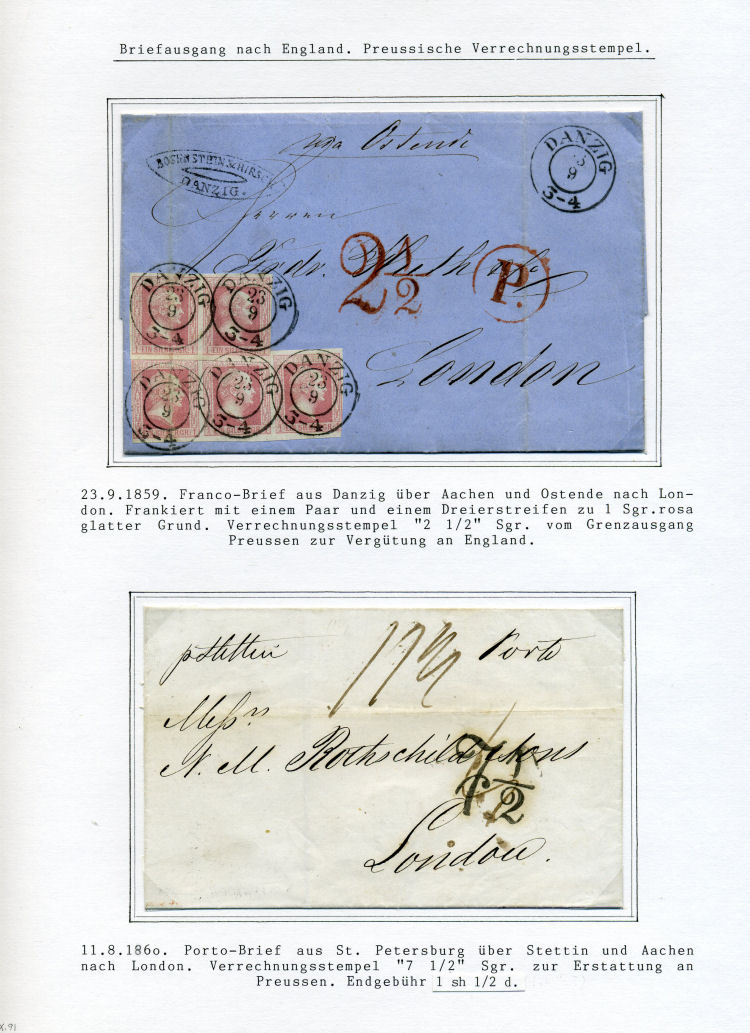 Briefausgang nach England. Preussische Verrechnungsstempel.
via Ostende
DANZIG
23
9
3-4
DANZIG.
Herren
2 1/2
P.
London
DANZIG
23
9
3-4
DANZIG
23
9
3-4
1 EIN SILBERGR. 1
EIN SILBERGR. 1
DANZIG
23
9
3-4
DANZIG
23
9
3-4
DANZIG
23
9
3-4
23.9.1859. Franco-Brief aus Danzig über Aachen und Ostende nach Lon-
don. Frankiert mit einem Paar und einem Dreierstreifen zu 1 Sgr.rosa
glatter Grund. Verrechnungsstempel "2 1/2" Sgr. vom Grenzausgang
Preussen zur Vergütung an England.
p Stettin
Porto
Messrs
N. M. Rothschild & Sons
7 1/2
London.
11.8.186o. Porto-Brief aus St. Petersburg über Stettin und Aachen
nach London. Verrechnungsstempel "7 1/2" Sgr. zur Erstattung an
Preussen. Endgebühr 1 sh 1/2 d.
X.91